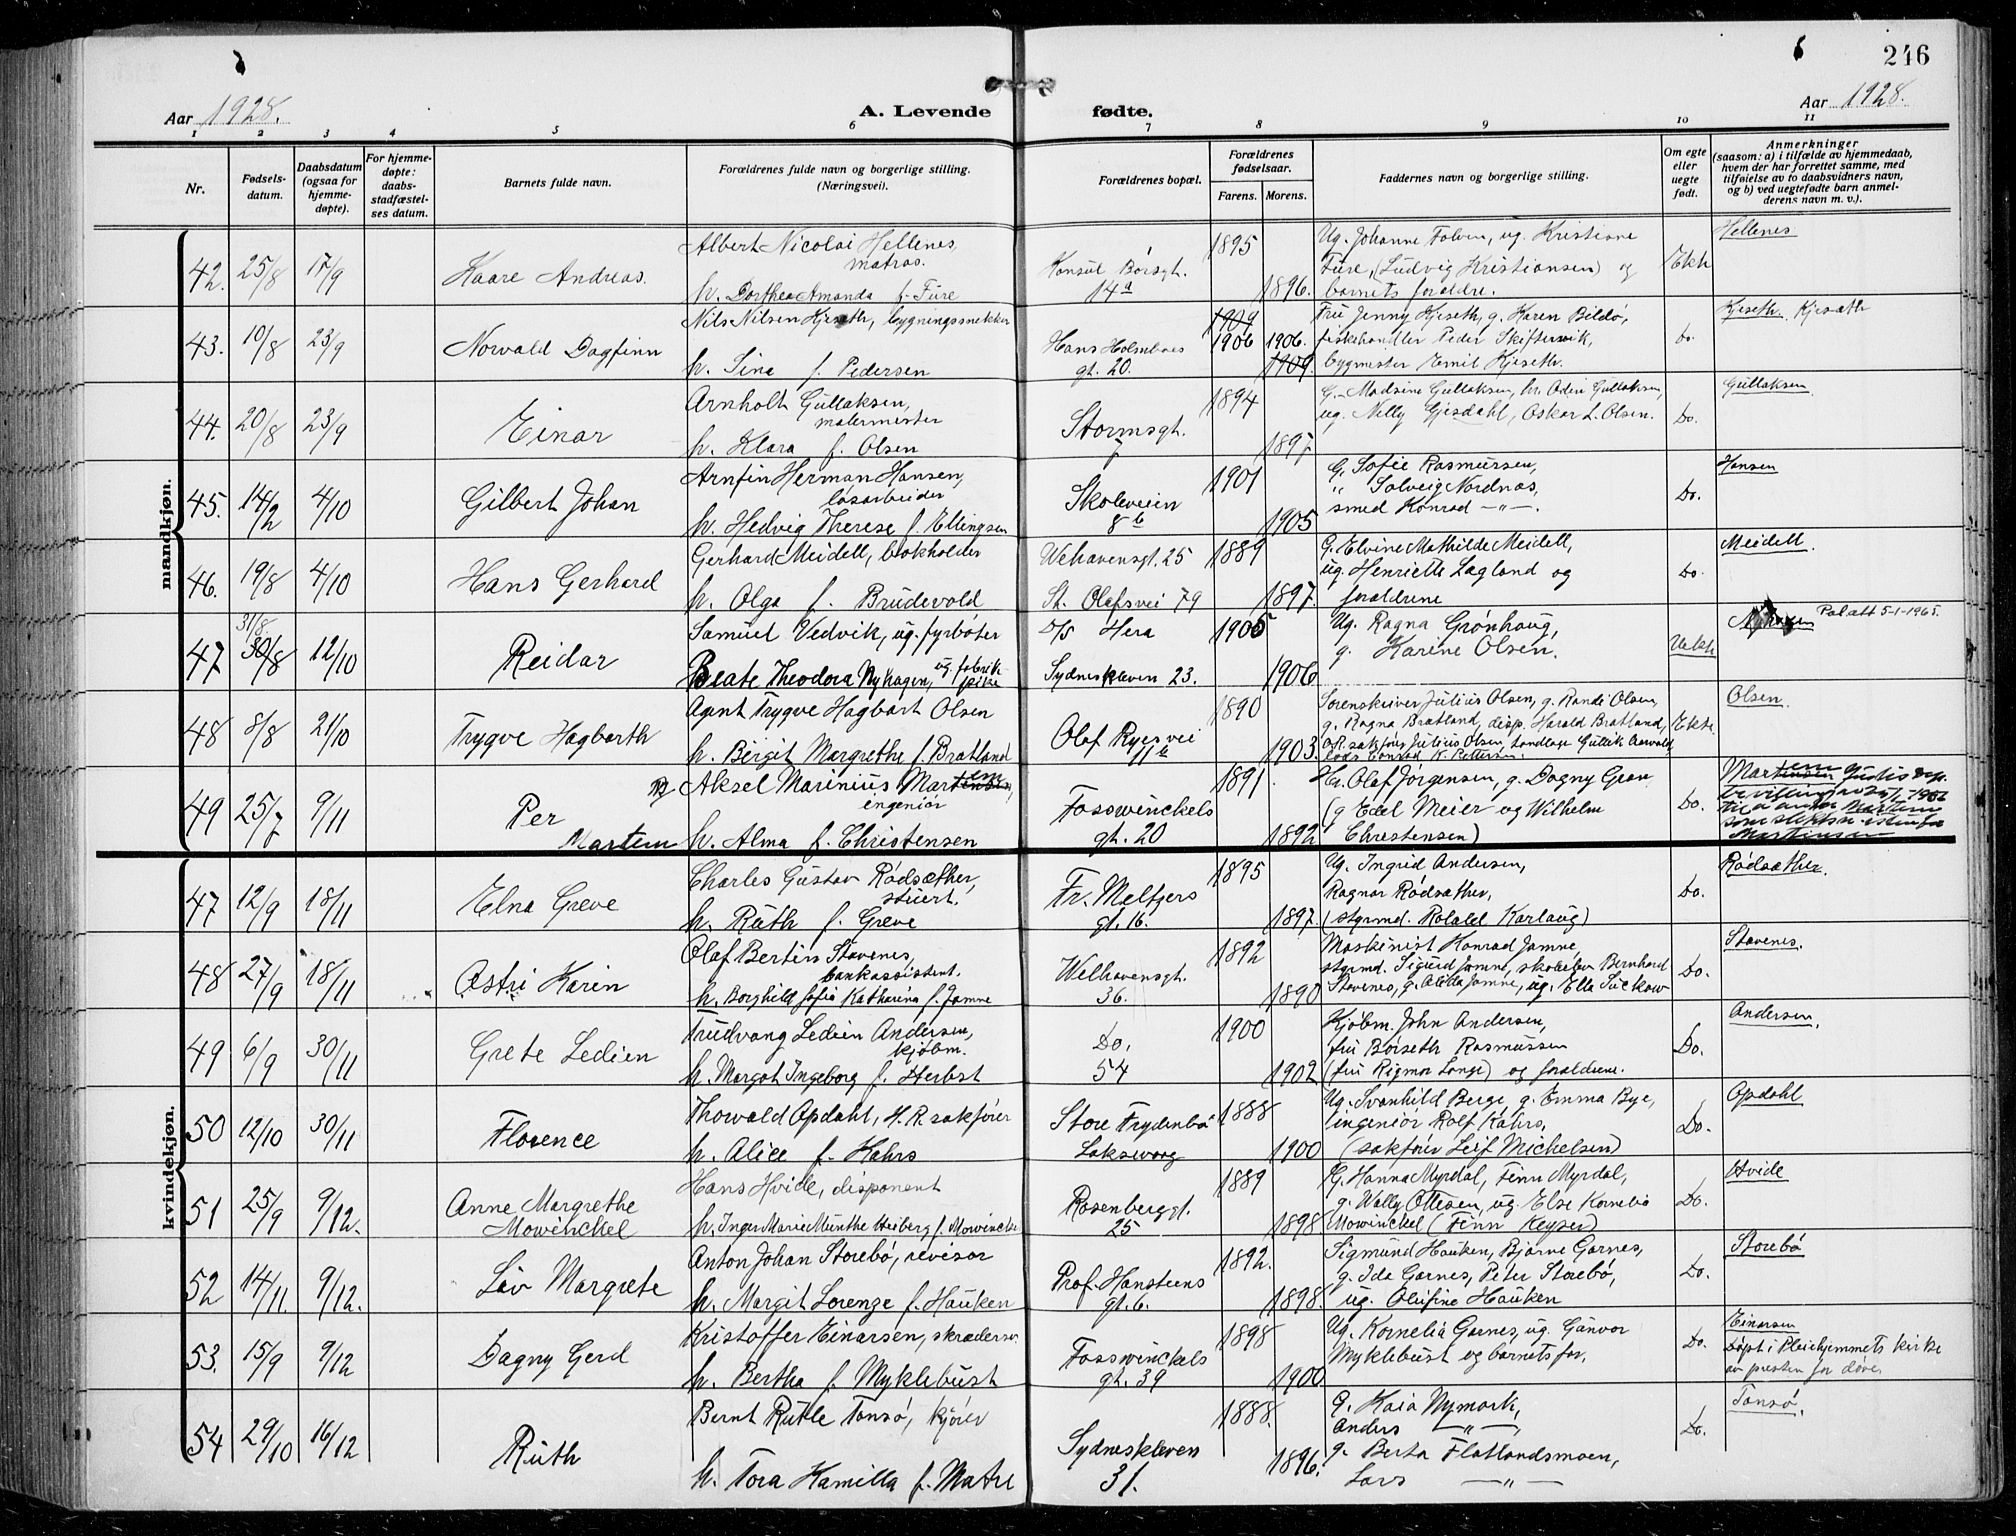 246
Aar 1928.
A. Levende fødte.
Aar 1928.
1 2 3 4 5 6 7 8 9 10 11
Nr.
Fødsels-
datum.
Daabsdatum
(ogsaa for
hjemme-
døpte).
For hjemme-
døpte:
daabs-
stadfæstel-
ses datum.
Barnets fulde navn.
Forældrenes fulde navn og borgerlige stilling.
(Næringsvei).
Forældrenes bopæl.
Forældrenes
fødselsaar.
Farens. Morens.
Faddernes navn og borgerlige stilling.
Om egte
eller
uegte
født.
Anmerkninger
(saasom: a) i tilfælde av hjemmedaab,
hvem der har forrettet samme, med
tilføielse av to daabsvidners navn,
og b) ved uegtefødte barn anmel-
derens navn m. v.).
mandkjøn.
42. 25/8 17/9 Kaare Andreas.
Albert Nicolai Hellenes
matros.
h. Dorthea Amanda f. Fure
Konsul Børsgt.
14a
1895
1896.
Ug. Johanne Folven, ug. Kristiane
Fure, (Ludvig Kristiansen) og
barnets foraldre.
Ekte
Hellenes
43. 10/8 23/9 Norvald Dagfinn
Nils Nilsen Kjeseth, bygningssnekker
h. Sina f. Pedersen
Hans Holmboes
gt. 20.
1909
1906 1906.
1909
Fru Jenny Kjeseth, g. Karen Bildø,
fiskehandler Peder Skiftesvik,
bygmester Emil Kjeseth.
do.
Kjeseth. Kjesæth
44. 20/8 23/9 Einar
Arnholt Gullaksen,
malermester
h. Klara f. Olsen
Stormsgt.
7
1894
1897
G. Madsine Gullaksen, hr. Odin Gullaksen,
ug. Nelly Gjesdahl, Oskar L. Olsen.
Do.
Gullaksen
45. 14/2 4/10 Gilbert Johan
Arnfin Herman Hansen,
løsarbeider
h. Hedvig Therese f. Ellingsen
Skoleveien
8b
1901
1905
G. Sofie Rasmussen,
" Solveig Nordnes,
smed Konrad -"-.
Do.
Hansen
46. 19/8 4/10 Hans Gerhard
Gerhard Meidell, bokholder
h. Olga f. Brudevold
Wehavensgt. 25
St. Olafsvei 79
1889
1897.
G. Elvine Mathilde Meidell,
ug. Henriette Lagland og
foraldrene
Do.
Meidell.
47 31/8
30/8 12/10 Reidar
Samuel Vedvik, ug. fyrbøter
Beate Theodora Nyhagen, ug. fabrik-
pike
D/S Hera
Sydneskleven 23.
1905
1906
Ug. Ragna Grønhaug,
g. Karine Olsen.
Uekte
Nyhagen Pal.att 5-1-1965.
48 8/8 21/10 Trygve Hagbarth
Agent Trygve Hagbart Olsen
h. Birgit Margrethe f. Bratland
Olaf Ryesvei
11a
1890
1903.
Sorenskriver Julius Olsen, g. Randi Olsen,
g. Ragna Bratland, disp. Harald Bratland,
Ekte.
Olsen.
49 25/7 9/11 Per
Martem
Aksel Marinius Martensen,
ingeniør
h. Alma f. Christensen
Fosswinckels
gt. 20
1891.
1892
Hr. Olaf Jørgensen, g. Dagny Gran
(g Edel Meier og Wilhelm
Christensen)
Do.
Martinsen
kvindekjøn.
47 12/9 18/11 Elna Greve
Charles Gustav Rødsæther,
stuert.
h. Ruth f. Greve
Fr. Meltzers
gt. 16.
1895
1897.
Ug. Ingrid Andersen,
Ragnar Rødsæther,
(styrmd. Roladd Karlaug)
Do.
Rødsæther.
48 27/9 18/11 Astri Karin
Olaf Bertin Stavenes,
bankassistent.
h. Borghild Sofia Katharina f. Jamne
Welhavensgt.
36.
1892
1890
Maskinist Konrad Jamne,
styrmd. Sigurd Jamne, skoleelev Bernhard
Stavenes, g. Alida Jamne, ug. Ella Suckow
Do.
Stavenes.
49 6/9 30/11 Grete Ledien
Trudvang Ledien Andersen,
kjøbm.
h. Margot Ingeborg f. Herbst
Do.
54
1900
1902
Kjøbm. John Andersen,
fru Borseth Rasmussen
(fru Rigmor Lange) og foraldrene.
Do.
Andersen,
50 12/10 30/11 Florence
Thorvald Opdahl, H. R. sakfører
h. Alice f. Kahrs
Store Frydenbø
Laksevaag
1888
1900
Ug. Svanhild Berge, g. Emma Bye,
ingeniør Rolf Kahrs,
(sakfører Leif Michelsen)
Do.
Opdahl
51 25/9 9/12. Anne Margrethe
Mowinckel
Hans Hvide, disponent
h. Inger Marie Munthe Heiberg f. Mowinckel
Rosenberggt.
25
1889
1898
G. Hanna Myrdal, Finn Myrdal,
g. Wally Ottesen, ug. Else Kornebo
Mowinckel (Finn Keyser)
Do.
Hvide
52 14/11. 9/12. Liv Margrete
Anton Johan Storebø, revisor
h. Margit Lorenze f. Hauken
Prof. Hansteens
gt. 6.
1892.
1898.
Sigmund Hauken, Bjarne Garnes,
g. Ida Garnes, Peter Storebø,
ug. Olufine Hauken
Do.
Storebø
53. 15/9 9/12 Dagny Gerd
Kristoffer Einarsen, skræddersv.
h. Bertha f. Myklebust
Fosswinckels
gt. 39
1898
1900
Ug. Kornelia Garnes, ug. Gunvor
Myklebust og barnets far.
Do.
Einarsen
Døpt i Pleiehjemmets kirke
av presten for døve.
54 29/10 16/12 Ruth
Bernt Rutle Tonsø, kjører
h. Tora Kamilla f. Matre
Sydneskleven
31.
1888.
1896.
G. Kaia Nymark,
Anders -"-
g. Berta Flatlandsmoen,
Lars -"-
Do.
Tonsø.